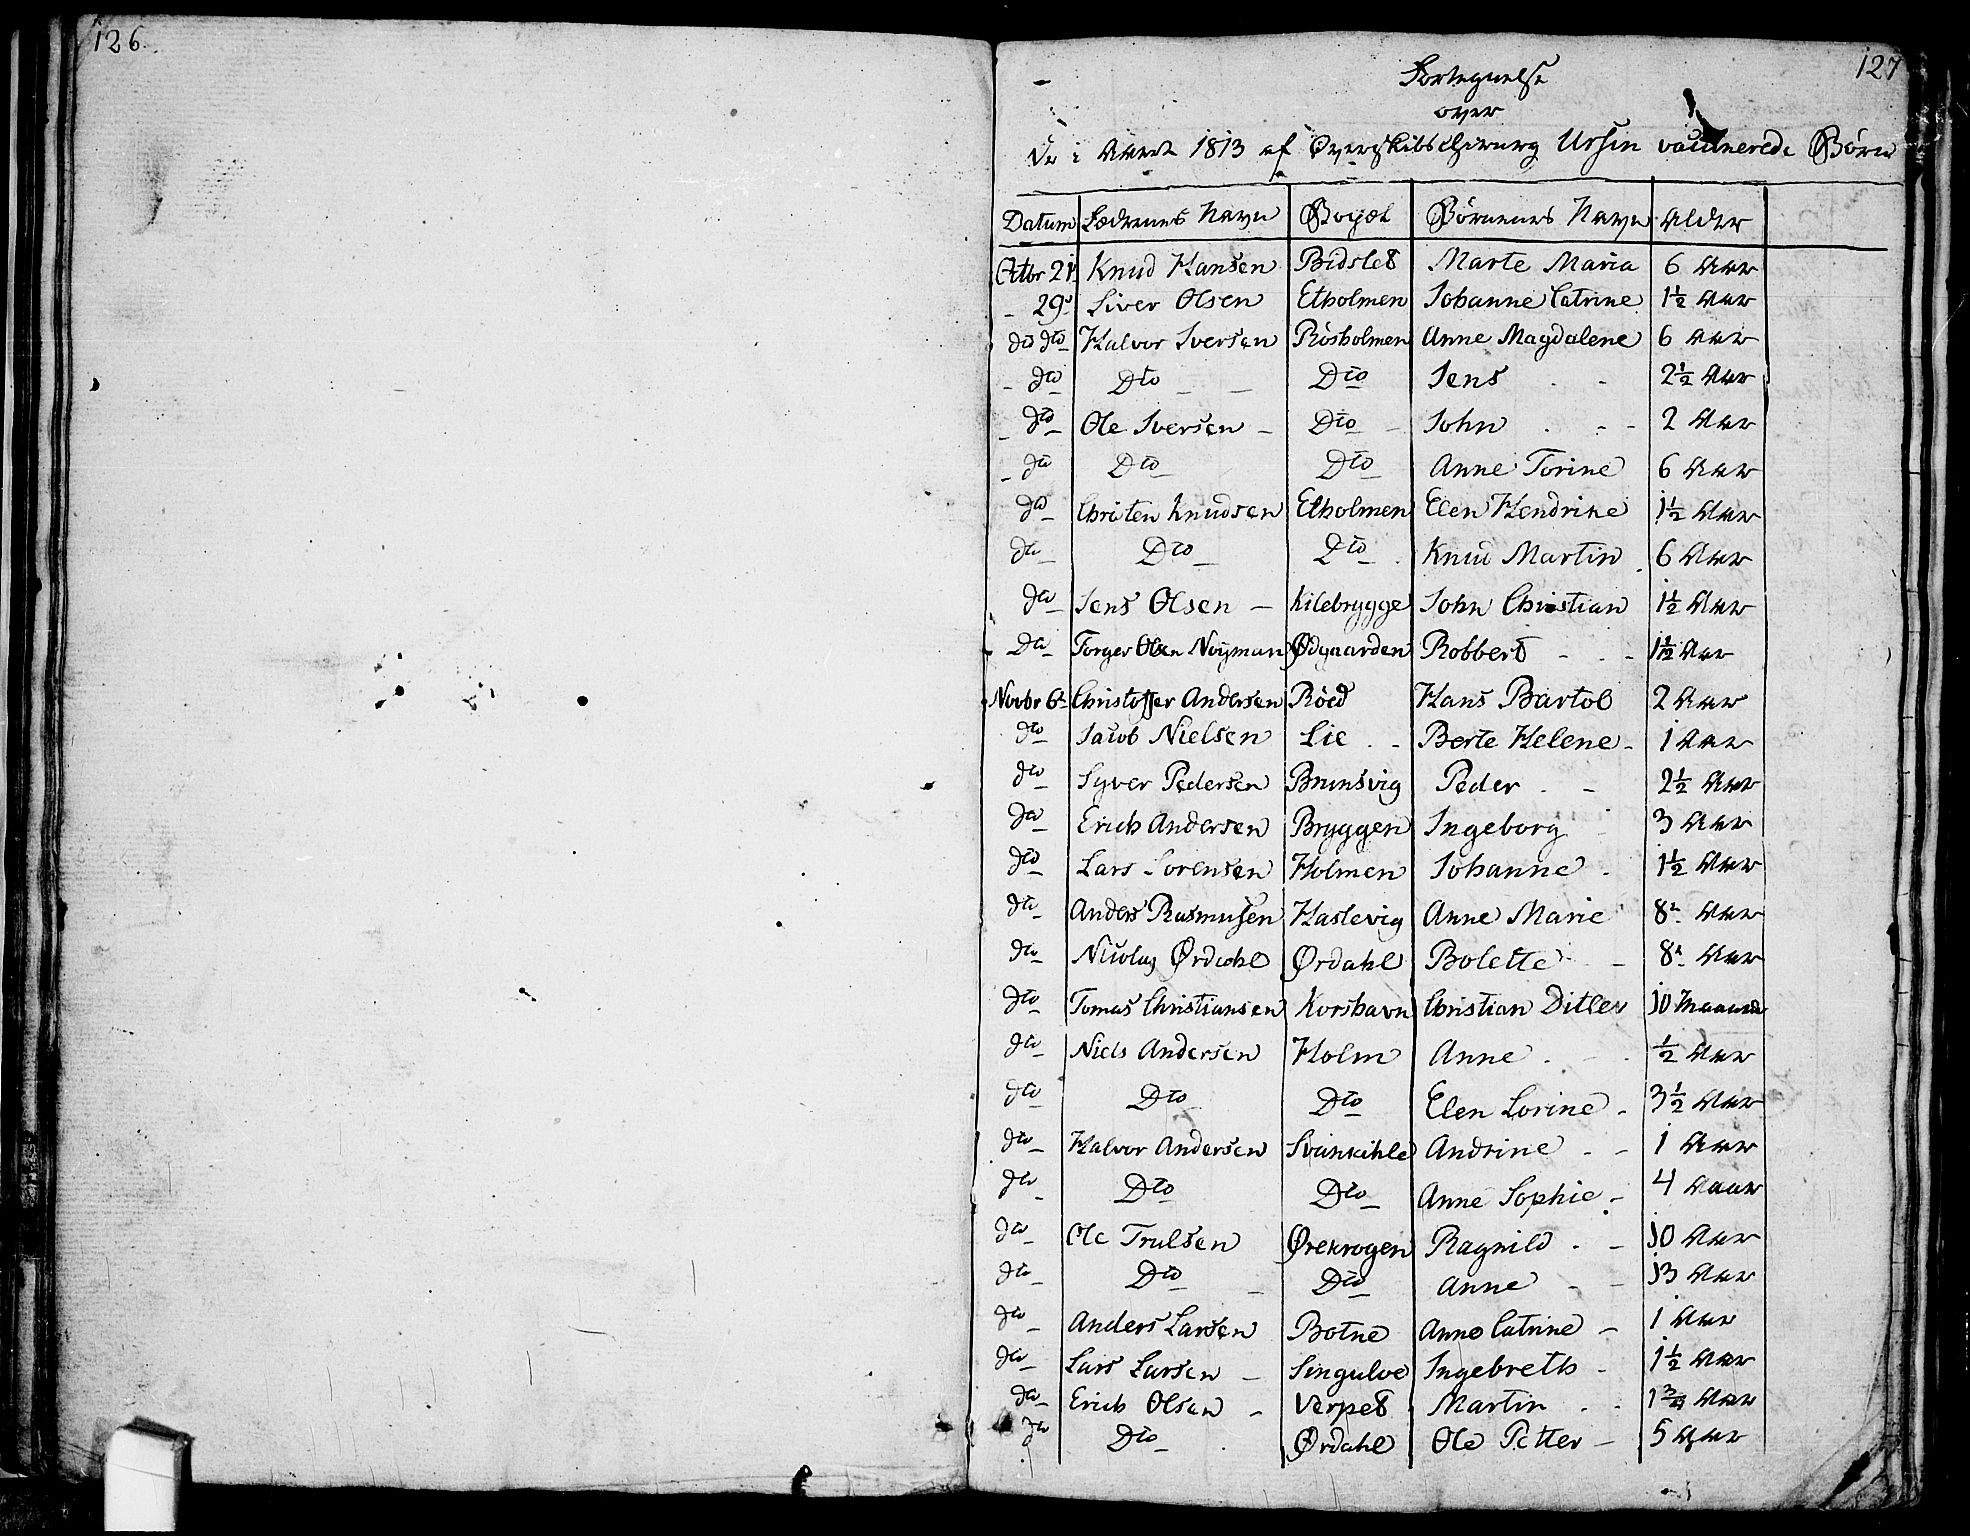 126.
127
Fortegnelse
over
De i Aaret 1813 af Overskibschirurg Ursin vaccinerede Børn
Datum Fædrenes Navn Boepæl Børnenes Navn Alder
Octbr 21 Knud Hansen Bidslet Marte Maria 6 Aar
- 29 Siver Olsen Etholmen Johanne Catrine 1½ Aar
do dto Halvor Iversen Rösholmen Anne Magdalene 6 Aar
- dto Dto Dto Jens 2½ Aar
- dto Ole Iversen - Dto John 2 Aar
- dto Dto Dto Anne Torine 6 Aar
dto Christen Knudsen Etholmen Elen Hendrine 1½ Aar
dto Dto Dto Knud Martin 6 Aar
dto Jens Olsen - Kilebrygge John Christian 1½ Aar
- Dto Torger Olsen Nöyman Ødgaarden Robbert - - 1½ Aar
Novbr 6te Christoffer Andersen Röed Hans Bartol 2 Aar
dto Jacob Nielsen Lie - Berte Helene - 1 Aar
dto Syver Pedersen Brunsvig Peder - 2½ Aar
dto Erich Andersen Bryggen Ingeborg 3 Aar
dto Lars Sorensen Holmen Johanne 1½ Aar
dto Anders Rasmusen Haslevig Anne Marie 8 Aar
dto Nicolay Ørdahl Ørdahl Bolette - 8 Aar
dto Tomas Christiansen Korshavn Christian Ditlev 10 Maaneder
dto Niels Andersen Holm Anne ½ Aar
dto Dto Dto Elen Lorine - 3½ Aar
dto Halvor Andersen Svinkihle Andrine - - 1 Aar
dto Dto Dto Anne Sophie - 4 Aaar
dto Ole Trulsen Ørekrogen Ragnild - 10 Aar
dto Dto Dto Anne - - 13 Aar
dto Anders Larsen Botne Anne Catrine - 1 Aar
dto Lars Larsen - Singuloe Ingebreth - 1½ Aar
dto Erich Olsen - Verpet Martin 1¾ Aar
dto Dto Ørdahl Ole Petter - 5 Aar